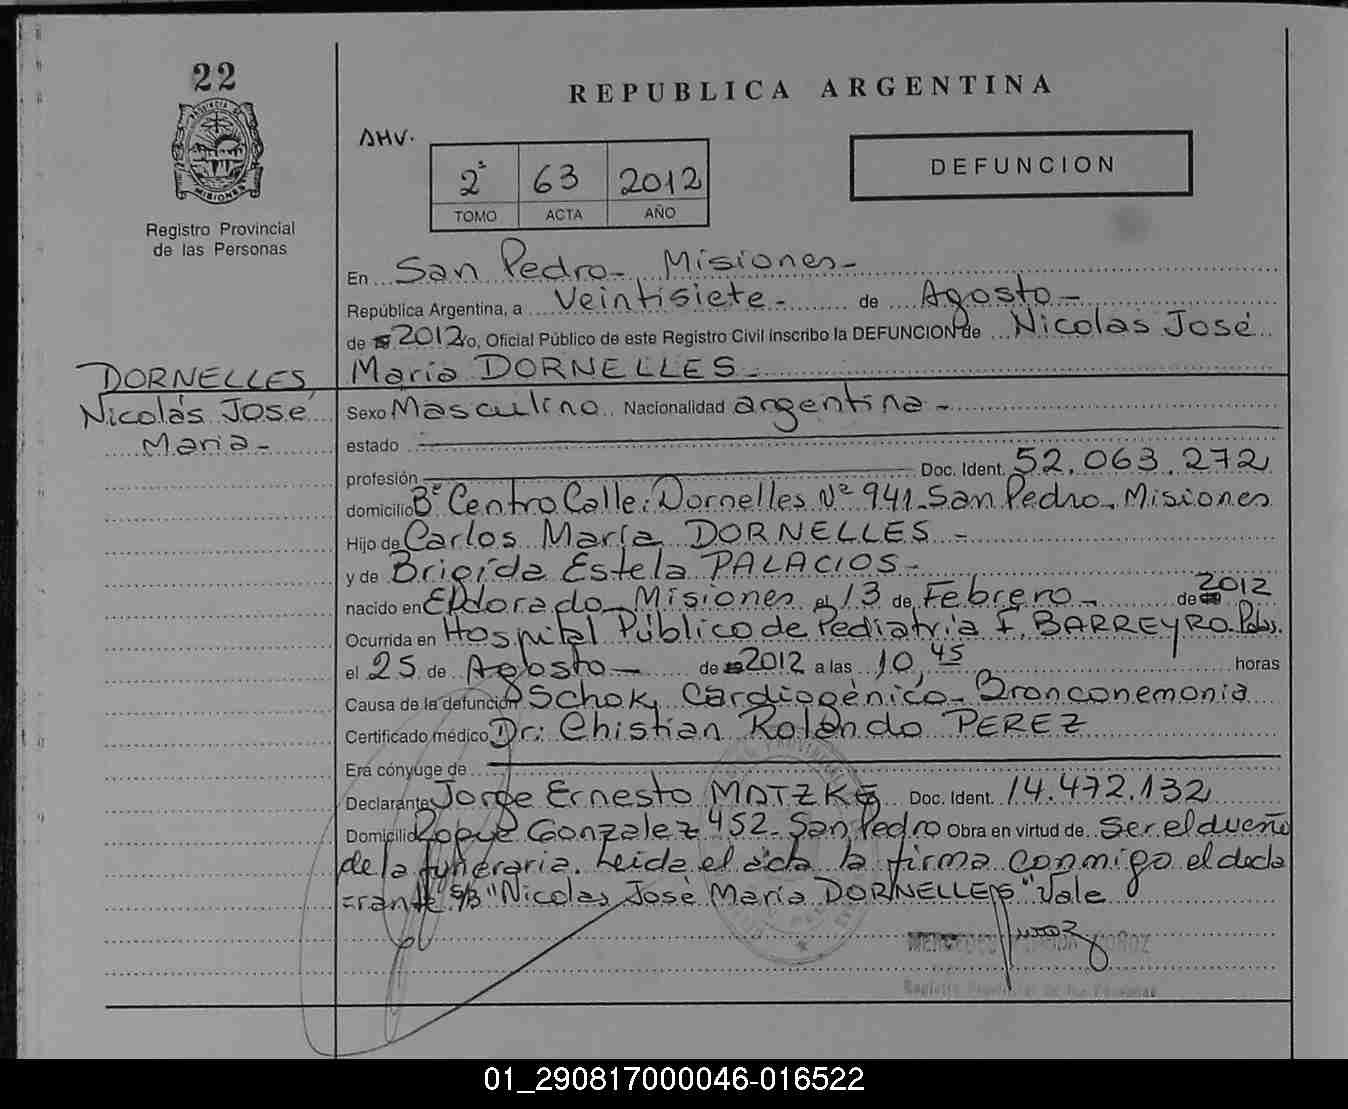 22
REPUBLICA ARGENTINA
PROVINCIA DE
MISIONES
Registro Provincial
de las Personas
AHV.
2º 63 2012
TOMO ACTA AÑO
DEFUNCION
En San Pedro - Misiones -
República Argentina, a Veintisiete - de Agosto -
de 2012 yo, Oficial Público de este Registro Civil inscribo la DEFUNCION de Nicolas José
María DORNELLES -
DORNELLES
Nicolás José
María -
Sexo Masculino Nacionalidad argentina -
estado
profesión Doc. Ident. 52.063.272
domicilio Bº Centro Calle: Dornelles Nº 941 - San Pedro - Misiones
Hijo de Carlos María DORNELLES -
y de Brigída Estela PALACIOS -
nacido en Eldorado - Misiones el 13 de Febrero - de 2012
Ocurrida en Hospital Público de Pediatría F. BARREYRO. Pdas.
el 25 de Agosto - de 2012 a las 10,45 horas
Causa de la defunción Schok Cardiogénico - Bronconemonia
Certificado médico Dr: Chistian Rolando PEREZ
Era cónyuge de
Declarante Jorge Ernesto MATZKE Doc. Ident. 14.472.132
Domicilio Roque Gonzalez 452 - San Pedro Obra en virtud de ser el dueño
de la funeraria. Leida el acta la firma conmigo el decla
rante S/B "Nicolas José María DORNELLES" Vale
MERCEDES MUÑOZ
Registro Provincial de las Personas
01_290817000046-016522